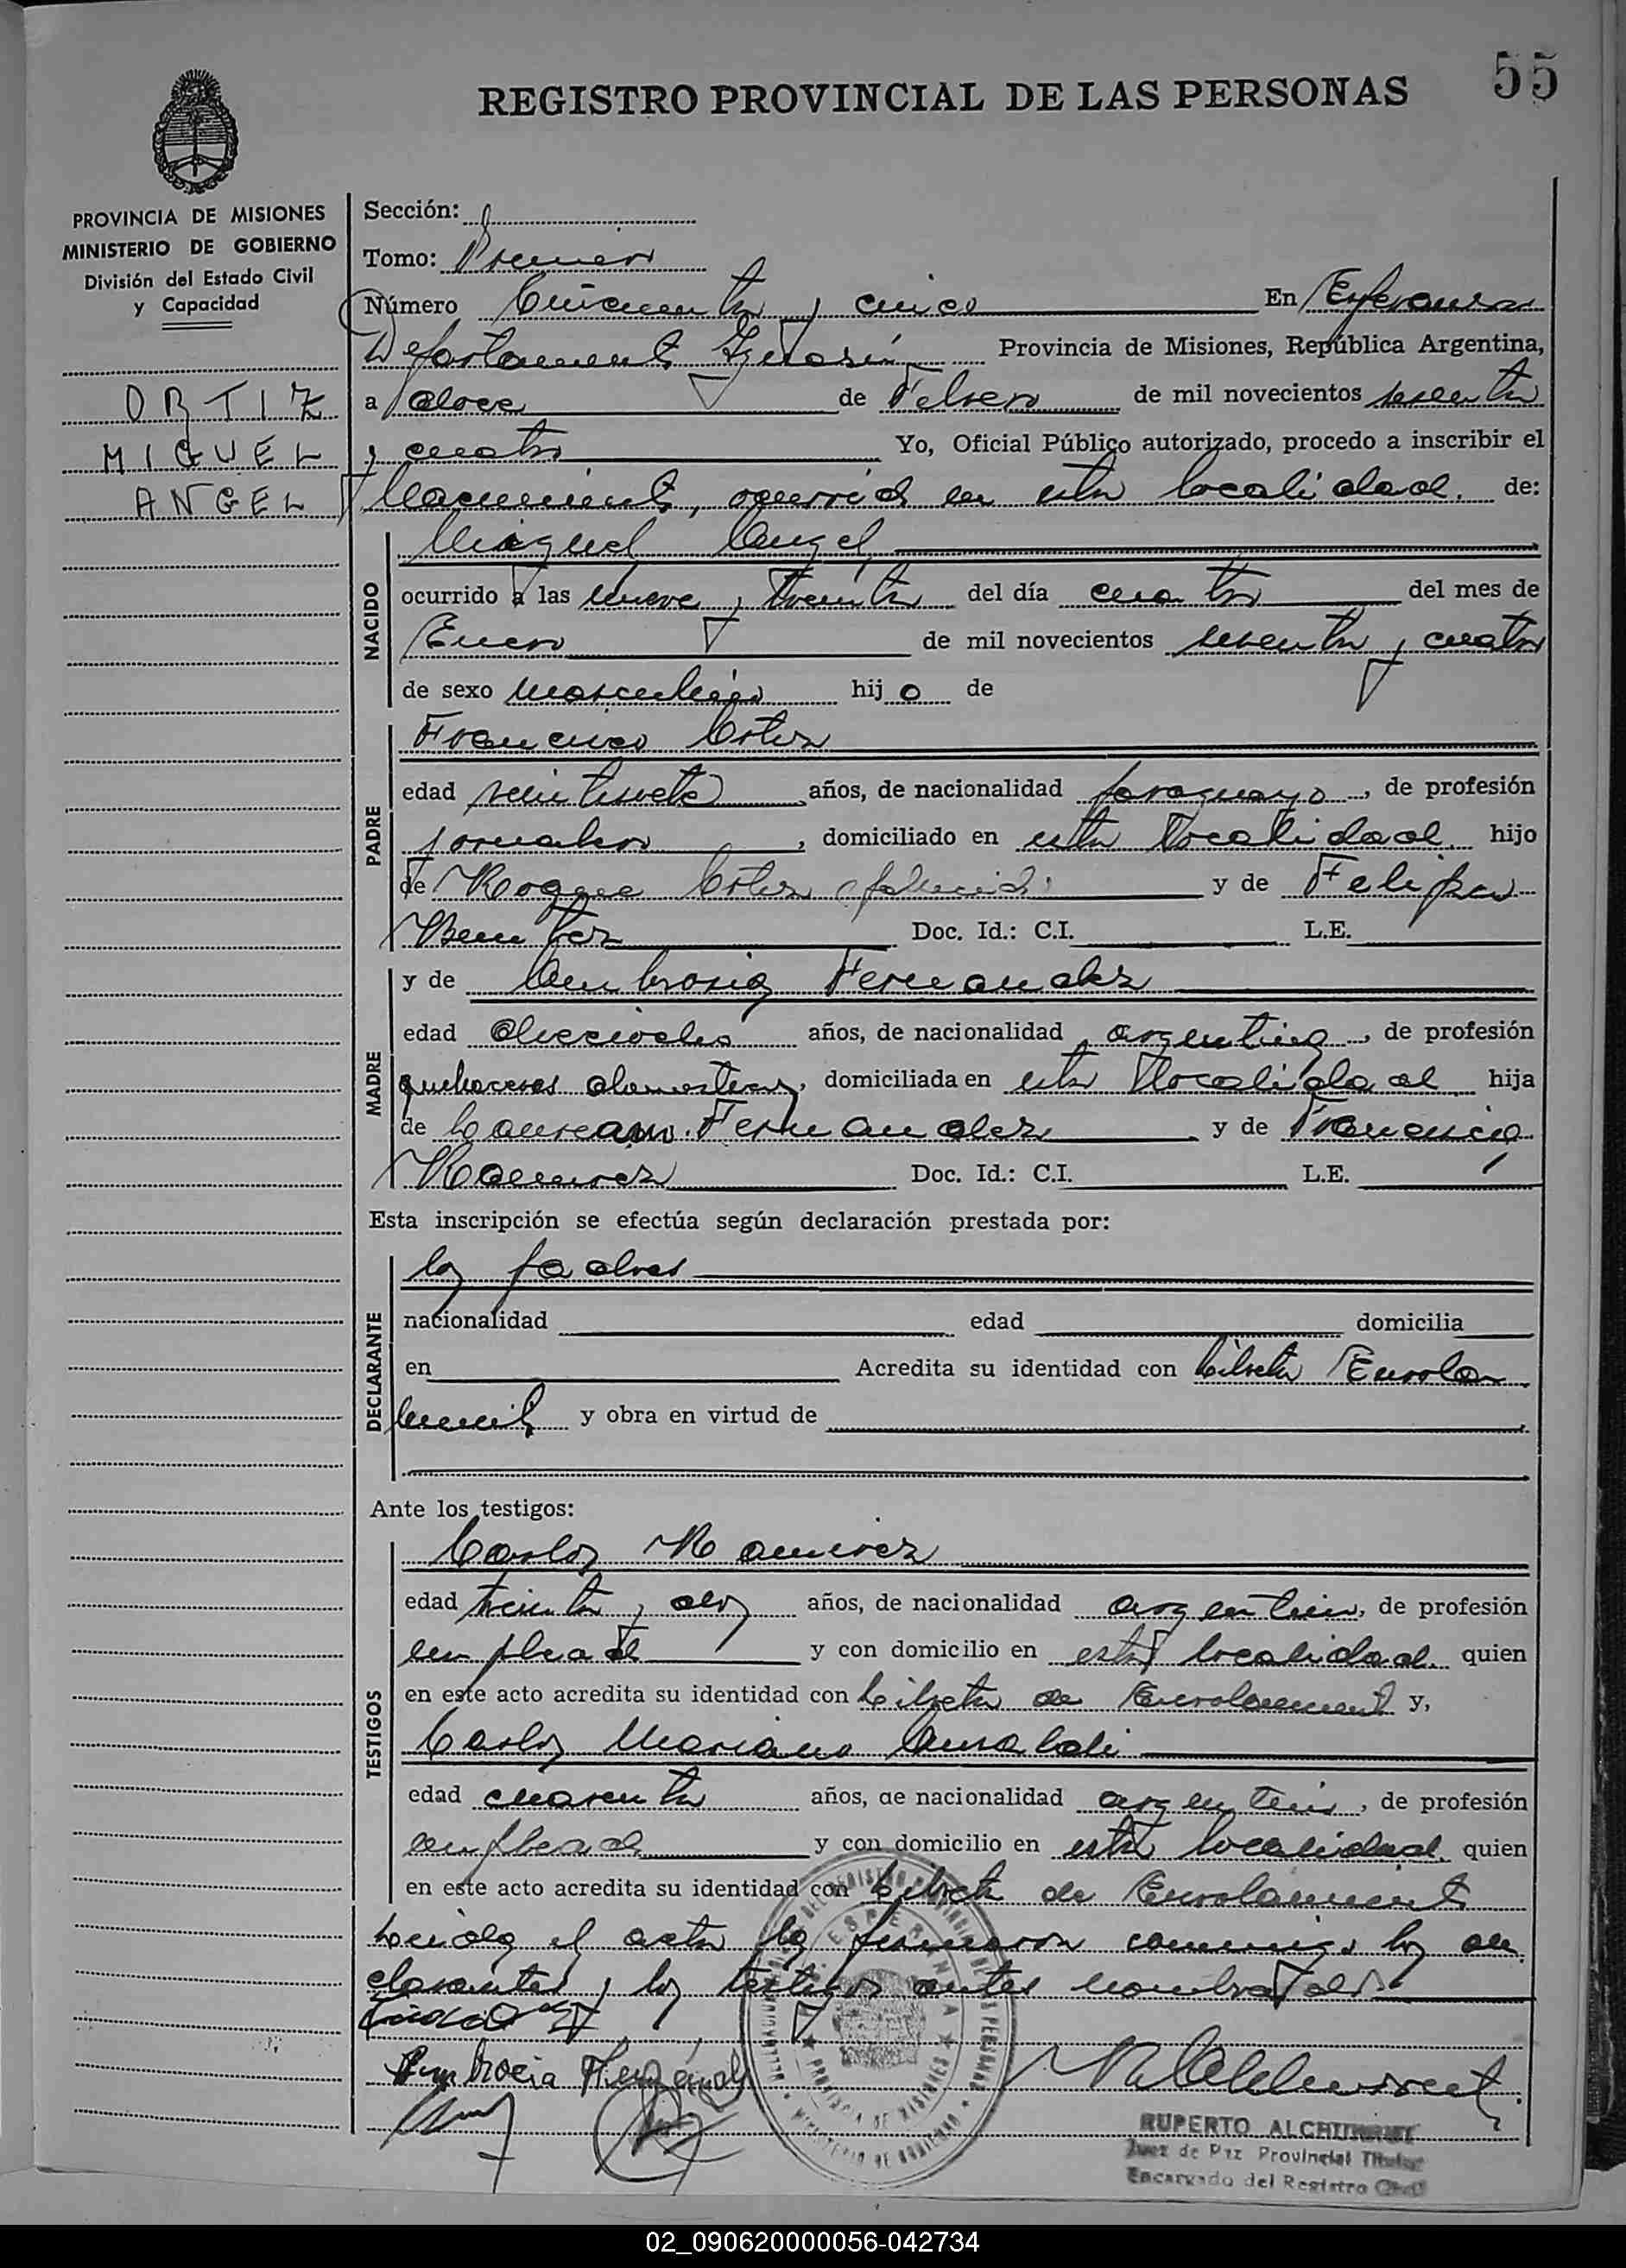 55
REGISTRO PROVINCIAL DE LAS PERSONAS
PROVINCIA DE MISIONES
MINISTERIO DE GOBIERNO
División del Estado Civil
y Capacidad
ORTIZ
MIGUEL
ANGEL
Sección:
Tomo: Primero
Número Cincuenta y cinco En Esperanza
Departamento Iguazú Provincia de Misiones, República Argentina,
a doce de Febrero de mil novecientos sesenta
y cuatro Yo, Oficial Público autorizado, procedo a inscribir el
Nacimiento, ocurrido en esta localidad. de:
NACIDO
Miguel Angel
ocurrido a las nueve y treinta del día cuatro del mes de
Enero de mil novecientos sesenta y cuatro
de sexo masculino hijo de
PADRE
Francisco Ortiz
edad veintisiete años, de nacionalidad paraguayo, de profesión
jornalero, domiciliado en esta localidad. hijo
de Roque Ortiz y de Felipa
Benitez Doc. Id.: C.I. L.E.
MADRE
y de Ambrosia Fernandez
edad dieciocho años, de nacionalidad argentina, de profesión
quehaceres domesticos, domiciliada en esta localidad hija
de Laureano Fernandez y de Francisca
Ramirez Doc. Id.: C.I. L.E.
Esta inscripción se efectúa según declaración prestada por:
DECLARANTE
los padres
nacionalidad edad domicilia
en Acredita su identidad con Libreta Enrola
miento y obra en virtud de
Ante los testigos:
TESTIGOS
Carlos Ramirez
edad treinta y dos años, de nacionalidad argentino, de profesión
empleado y con domicilio en esta localidad. quien
en este acto acredita su identidad con Libreta de Enrolamiento y,
Carlos Mariano
edad cuarenta años, de nacionalidad argentino, de profesión
empleado y con domicilio en esta localidad. quien
en este acto acredita su identidad con Libreta de Enrolamiento
Leida el acta la firmaron conmigo los de
clarantes y los testigos antes nombrados
Ambrocia
RUPERTO
Juez de Paz Provincial Titular
Encargado del Registro Civil
02_090620000056-042734